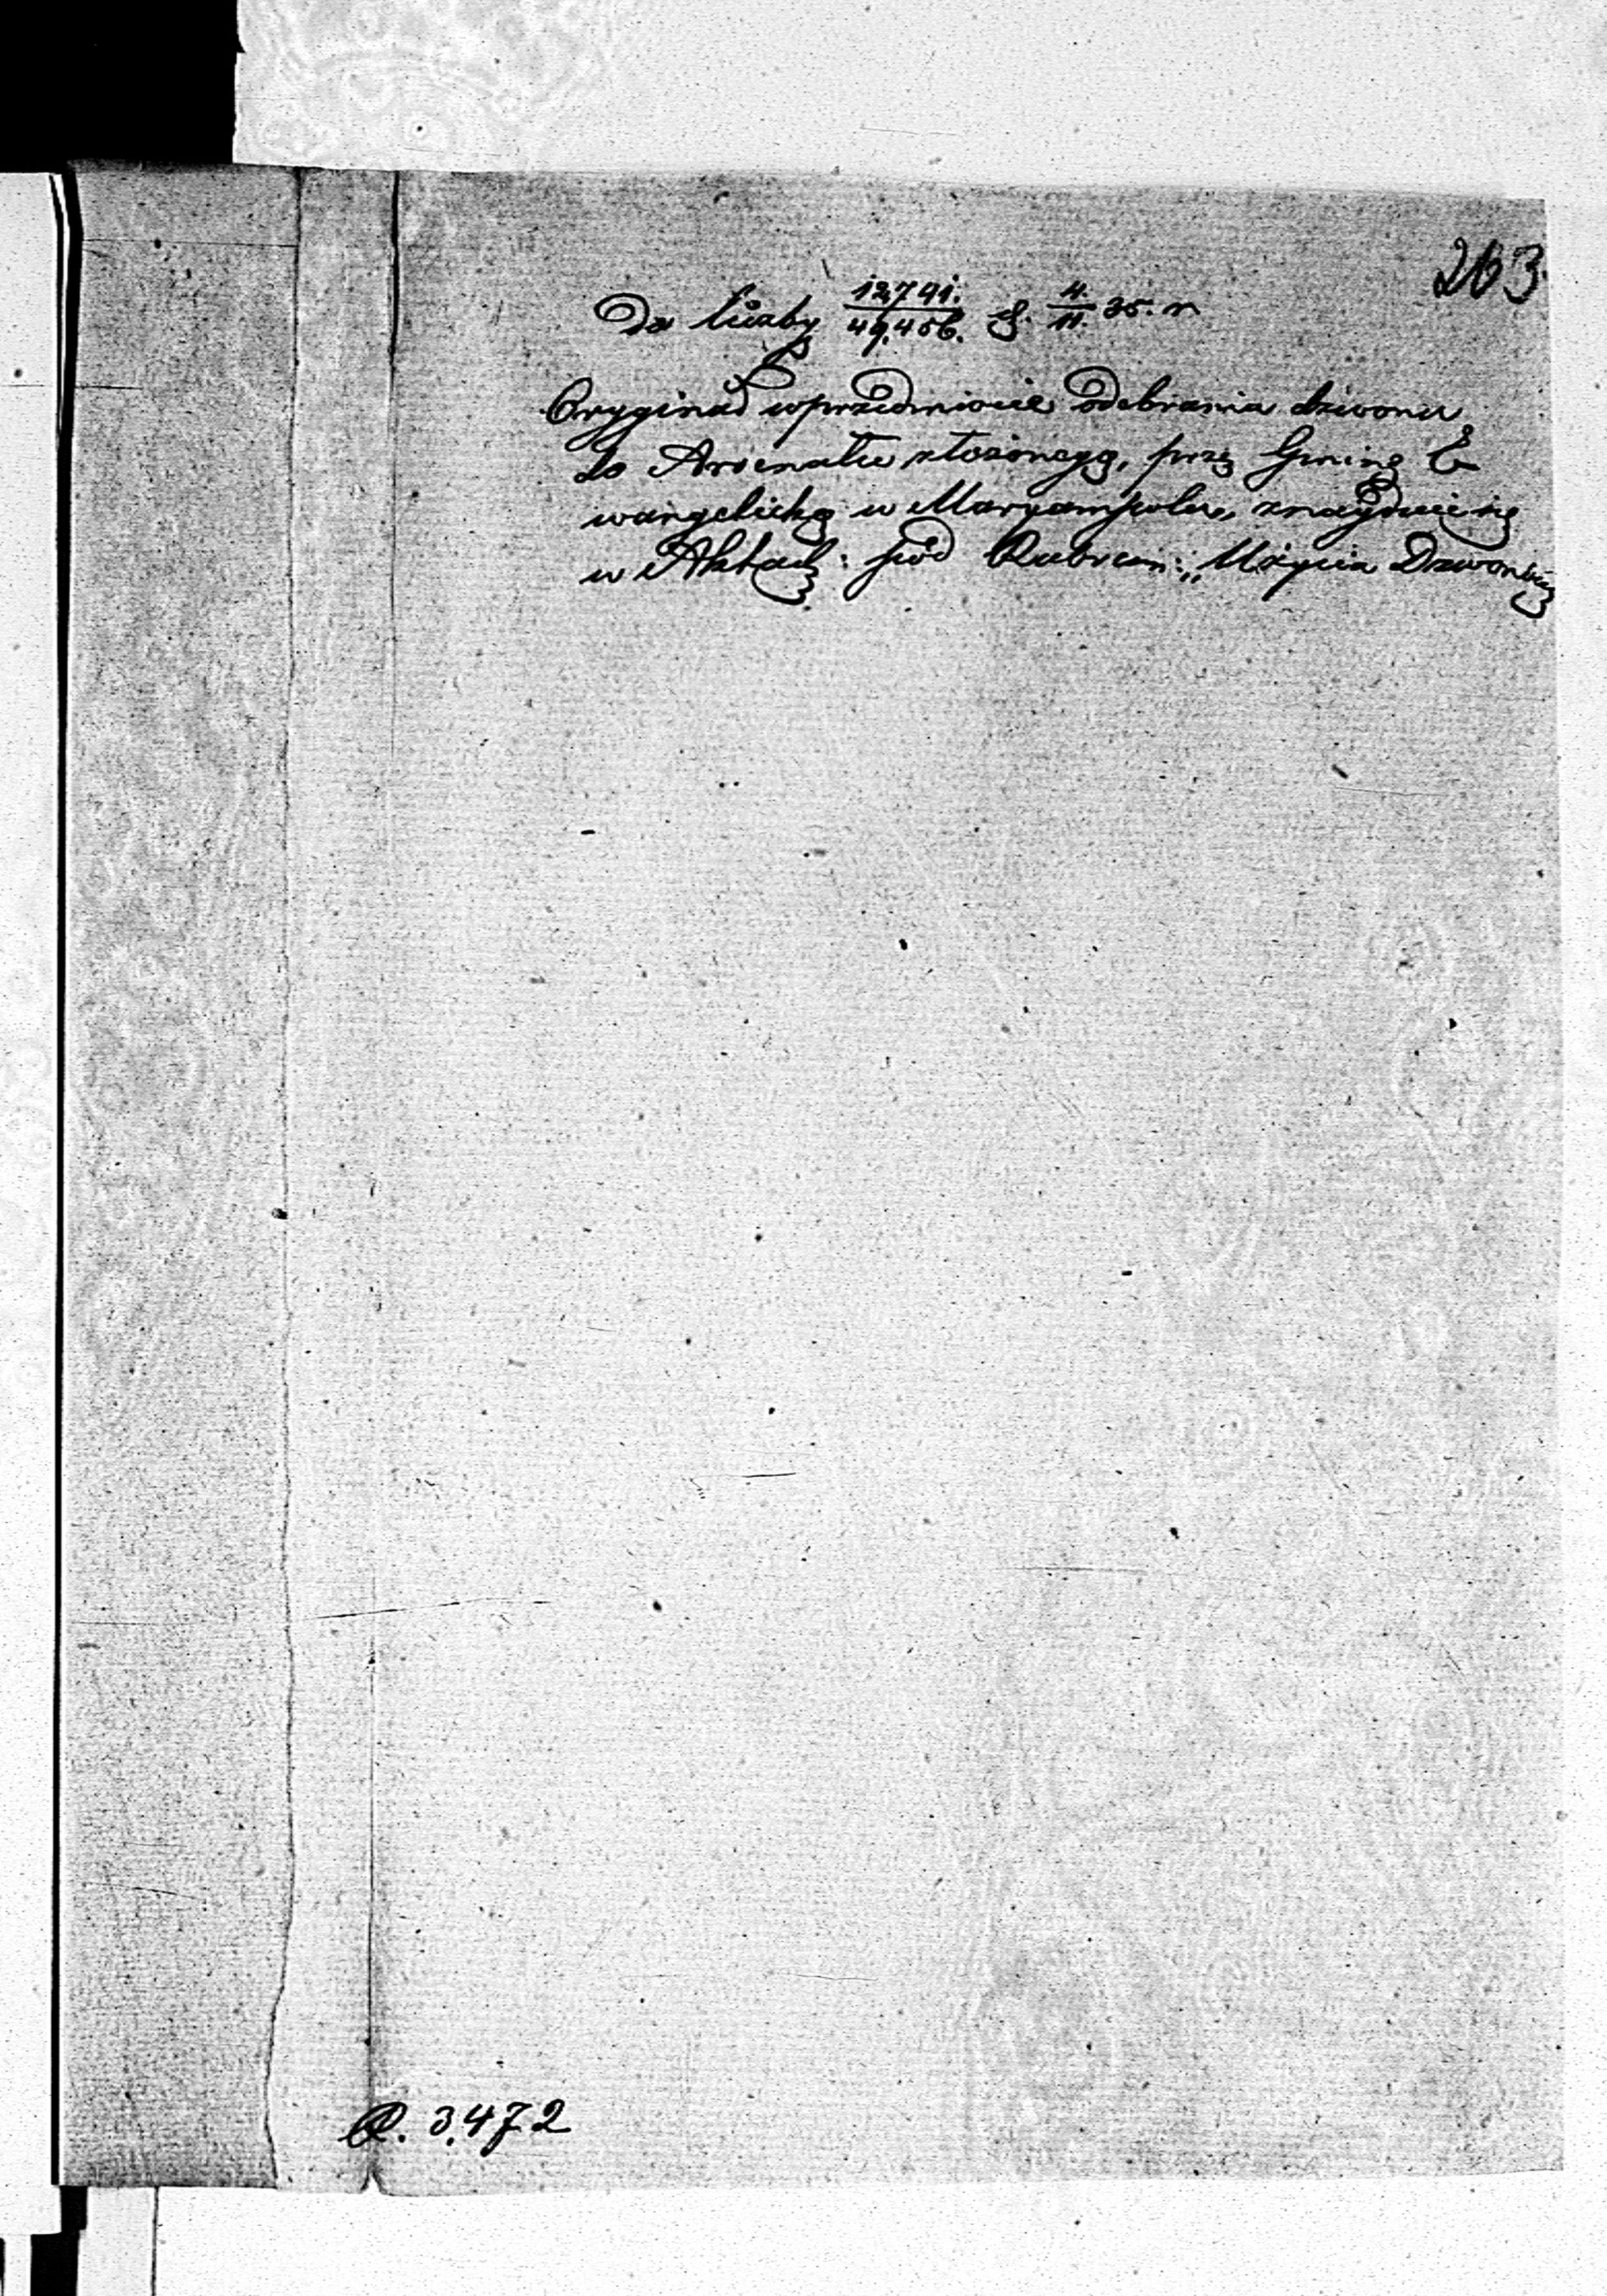 263
Do liczby 12,791./49,456. d. 4./11. 35. r
Oryginał w przedmiocie odebrania dzwonu
do Arsenału złożonego, przez Gminę E
wangelicką w Maryampolu, znayduie się
w Aktach: pod Rubrum: „Użycia Dzwonów
3,472